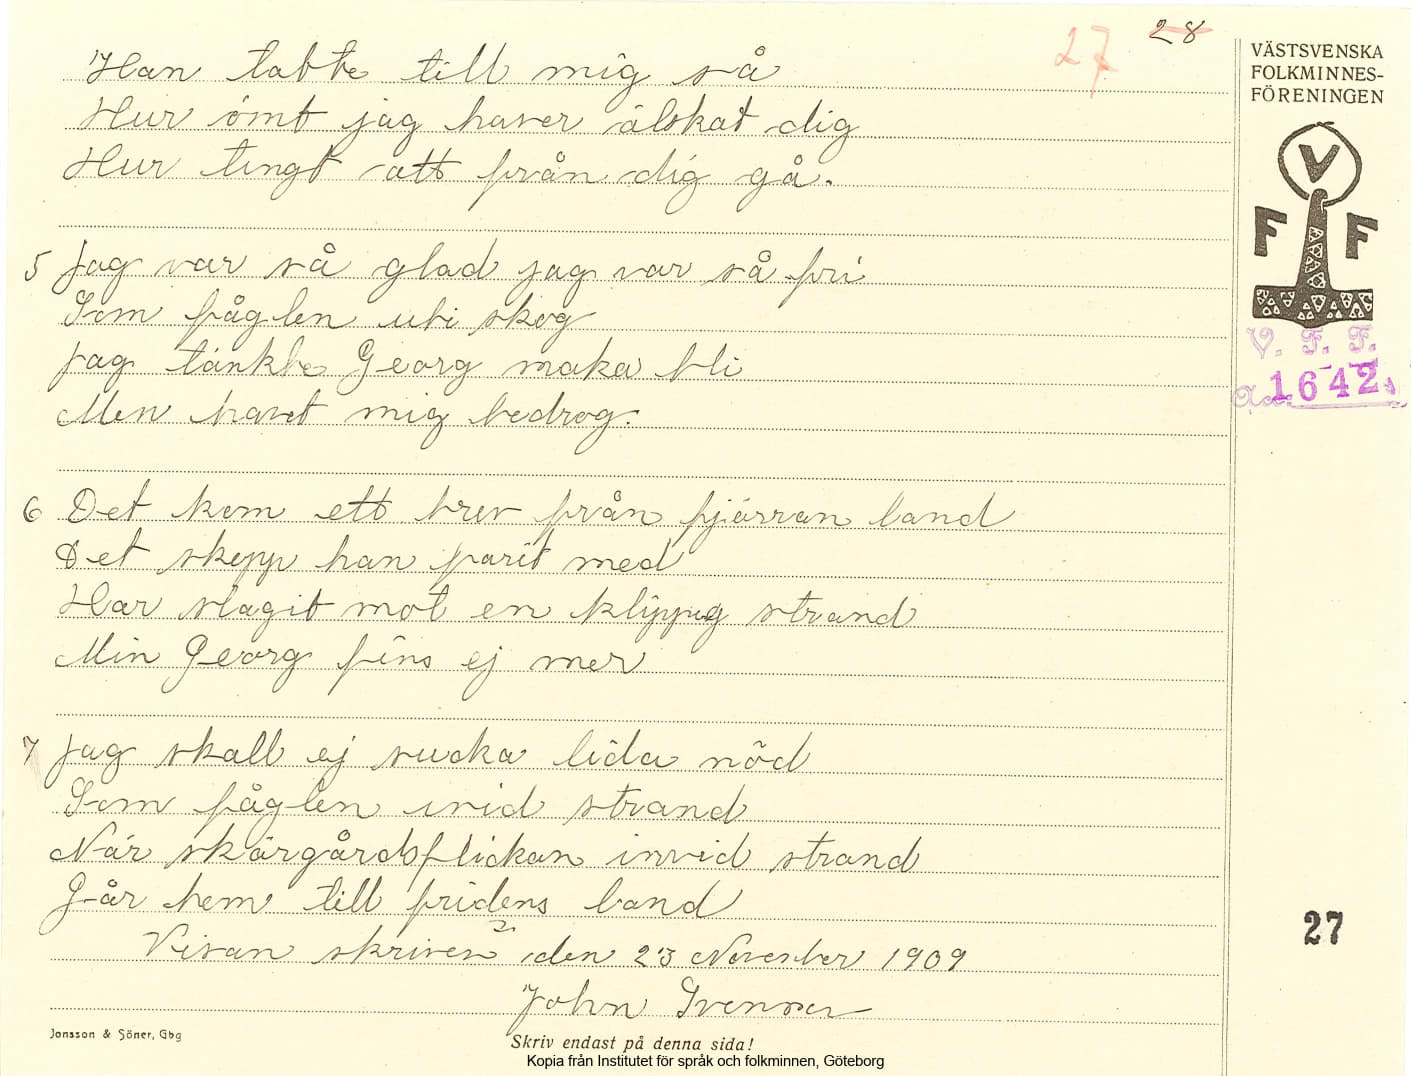 27 28
Han talte till mig så
Hur ömt jag haver älskat dig
Hur tungt att från dig gå.
5 Jag var så glad jag var så fri
Som fåglen uti skog
Jag tänkte Georg maka bli
Men havet mig bedrog.
6 Det kom ett brev från fjärran land
Det skepp han farit med
Har slagit mot en klippig strand
Min Georg fins ej mer
7 Jag skall ej sucka lida nöd
Som fåglen invid strand
När skärgårdsflickan invid strand
Går hem till fridens land
Visan skriven den 23 November 1909
John
Jonsson & Söner, Gbg
Skriv endast på denna sida!
Kopia från Institutet för språk och folkminnen, Göteborg
VÄSTSVENSKA
FOLKMINNES-
FÖRENINGEN
V
F F
V. F. F.
1642
27